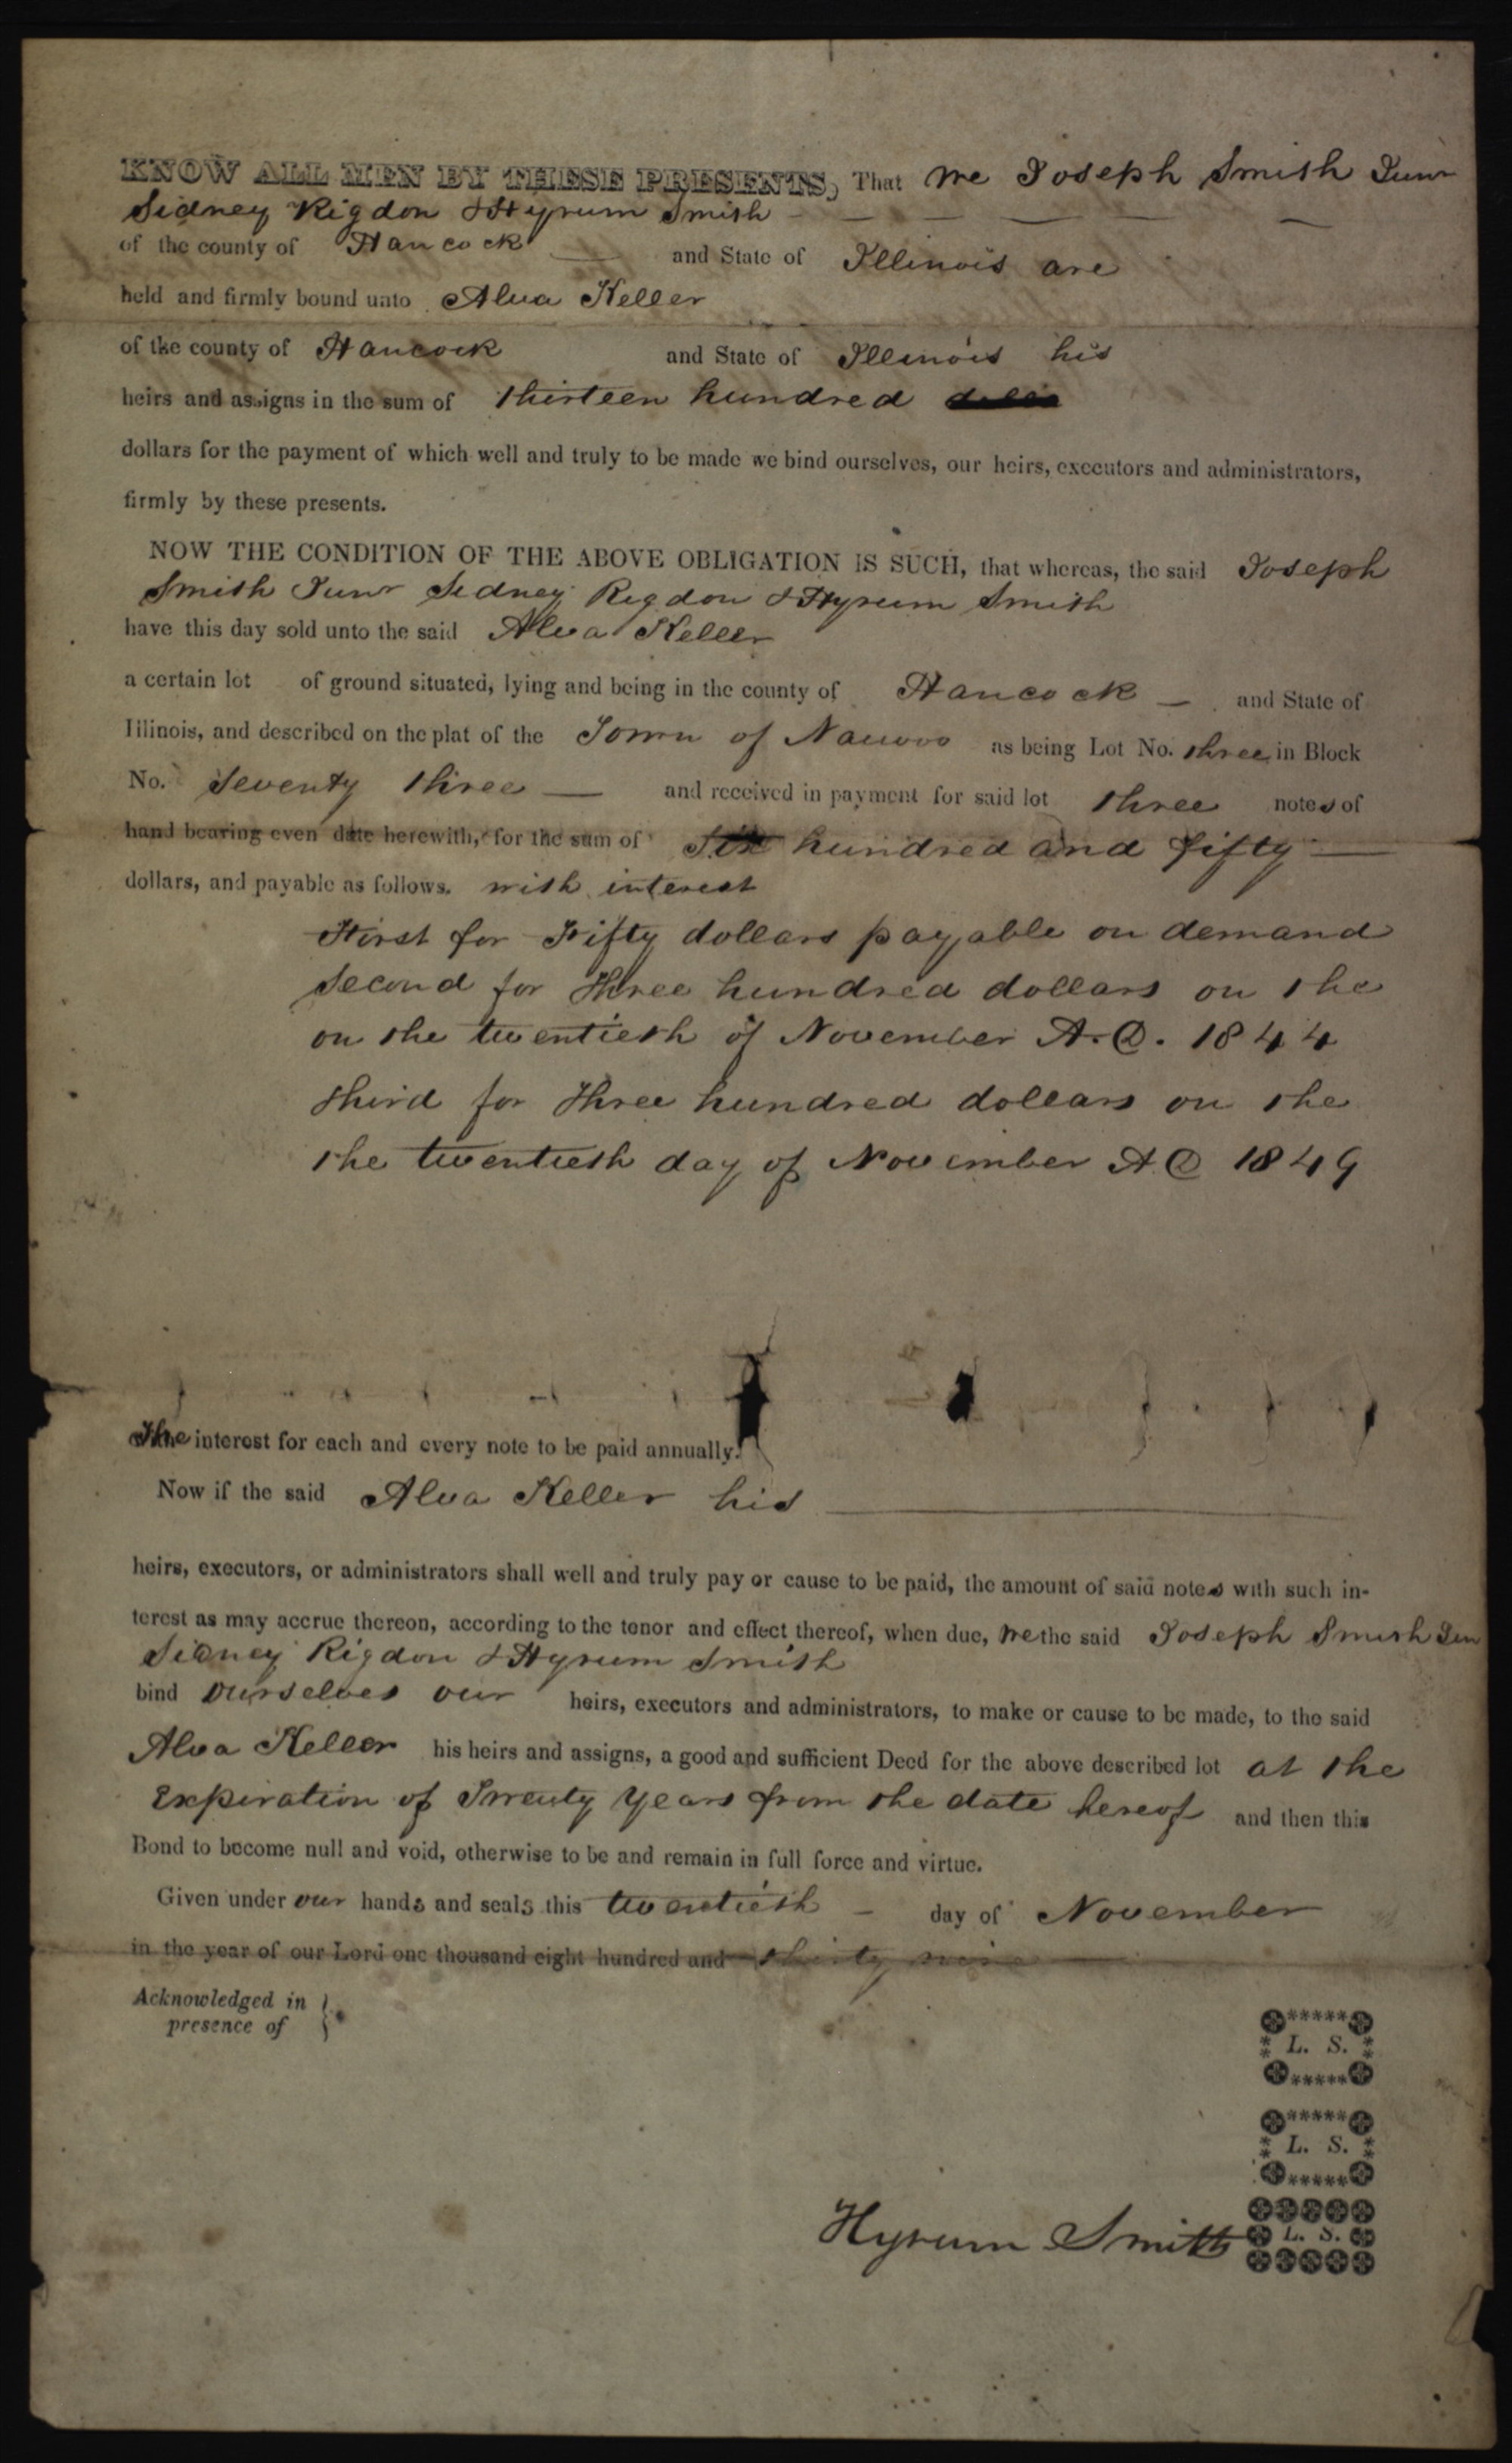 KNOW ALL MEN BY THESE PRESENTS, That We Joseph Smith Junr
Sidney Rigdon & Hyrum Smith
of the county of Hancock — and State of Illinois are
held and firmly bound unto Alva Keller
of the county of Hancock and State of Illinois his
heirs and assigns in the sum of thirteen hundred
dollars for the payment of which well and truly to be made we bind ourselves, our heirs, executors and administrators,
firmly by these presents.
NOW THE CONDITION OF THE ABOVE OBLIGATION IS SUCH, that whereas, the said Joseph
Smith Junr Sidney Rigdon & Hyrum Smith
have this day sold unto the said Alva Keller
a certain lot of ground situated, lying and being in the county of Hancock — and State of
Illinois, and described on the plat of the Town of Nauvoo as being Lot No. three in Block
No. Seventy three — and received in payment for said lot three notes of
hand bearing even date herewith, for the sum of Six hundred and fifty —
dollars, and payable as follows. with interest
First for Fifty dollars payable on demand
Second for three hundred dollars on the
on the twentieth of November A.D. 1844
third for three hundred dollars on the
the twentieth day of November A D 1849
The interest for each and every note to be paid annually.
Now if the said Alva Keller his
heirs, executors, or administrators shall well and truly pay or cause to be paid, the amount of said notes with such in-
terest as may accrue thereon, according to the tenor and effect thereof, when due, We the said Joseph Smith Jun
Sidney Rigdon & Hyrum Smith
bind ourselves our heirs, executors and administrators, to make or cause to be made, to the said
Alva Keller his heirs and assigns, a good and sufficient Deed for the above described lot at the
Expiration of Twenty Years from the date hereof and then this
Bond to become null and void, otherwise to be and remain in full force and virtue.
Given under our hands and seals this twentieth — day of November
in the year of our Lord one thousand eight hundred and thirty nine
Acknowledged in
presence of
L. S.
L. S.
Hyrum Smith L. S.